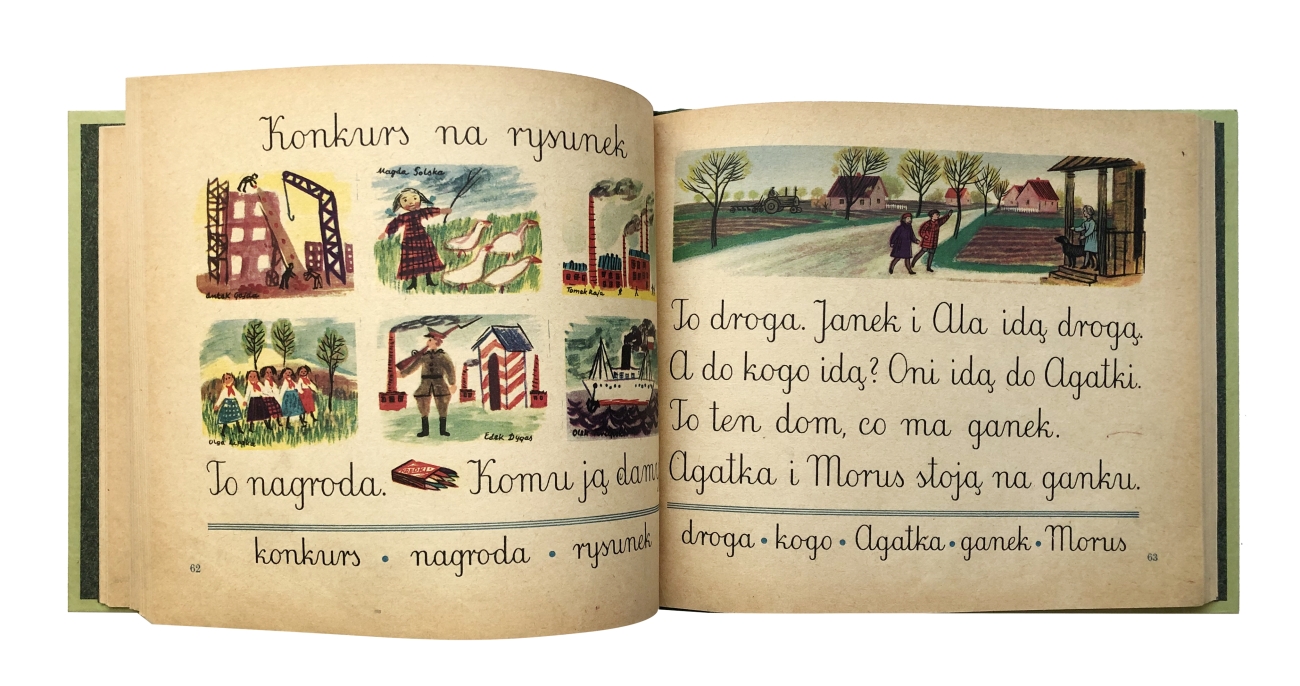 Konkurs na rysunek
Magda Solska
Tomek Raja
Edek Dygas
To nagroda. Komu ją
konkurs • nagroda • rysunek
62
To droga. Janek i Ala idą drogą.
A do kogo idą? Oni idą do Agatki.
To ten dom, co ma ganek.
Agatka i Morus stoją na ganku.
droga • kogo • Agatka • ganek • Morus
63